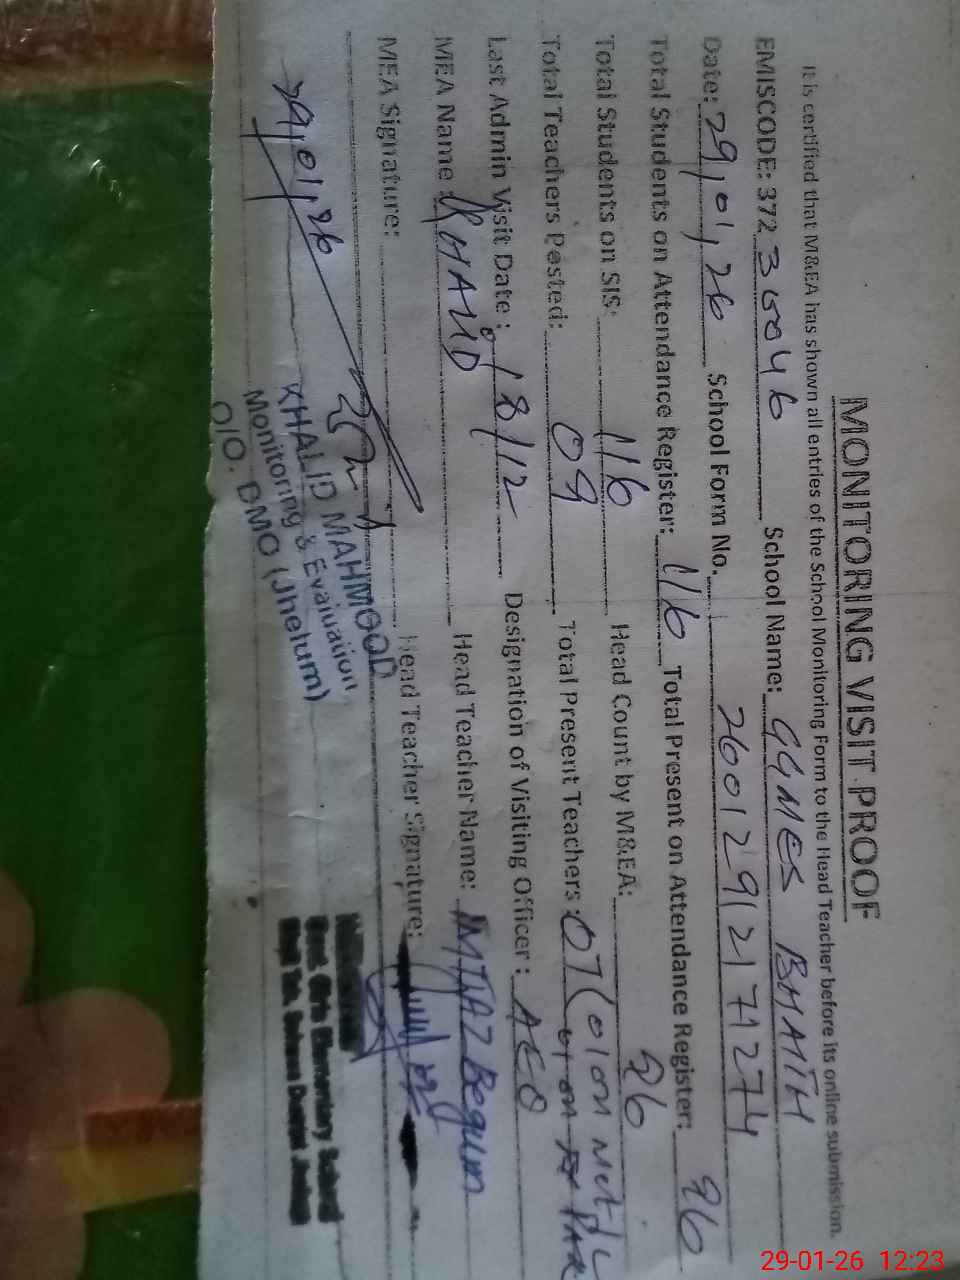 MONITORING VISIT PROOF
It is certified that M&EA has shown all entries of the School Monitoring Form to the Head Teacher before its online submission.
EMISCODE: 372 30046 School Name: GGMES BHATTH
Date: 29,01,26 School Form No. 26012912171274
Total Students on Attendance Register: 116 Total Present on Attendance Register: 96
Total Students on SIS: 116 Head Count by M&EA: 96
Total Teachers Posted: 09 Total Present Teachers: 07 (01 on
Last Admin Visit Date: 18/12 Designation of Visiting Officer: AEO
MEA Name: KHALID Head Teacher Name: MTIAZ Begum
MEA Signature: Head Teacher Signature:
29,01,26
KHALID MAHMOOD
Monitoring & Evaluation
O/O. DMO (Jhelum)
Govt. Girls Elementary School
29-01-26 12:23